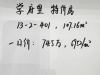 学府里 特价房
13-2-401，107.16m²
一口价：745万，6950/m²